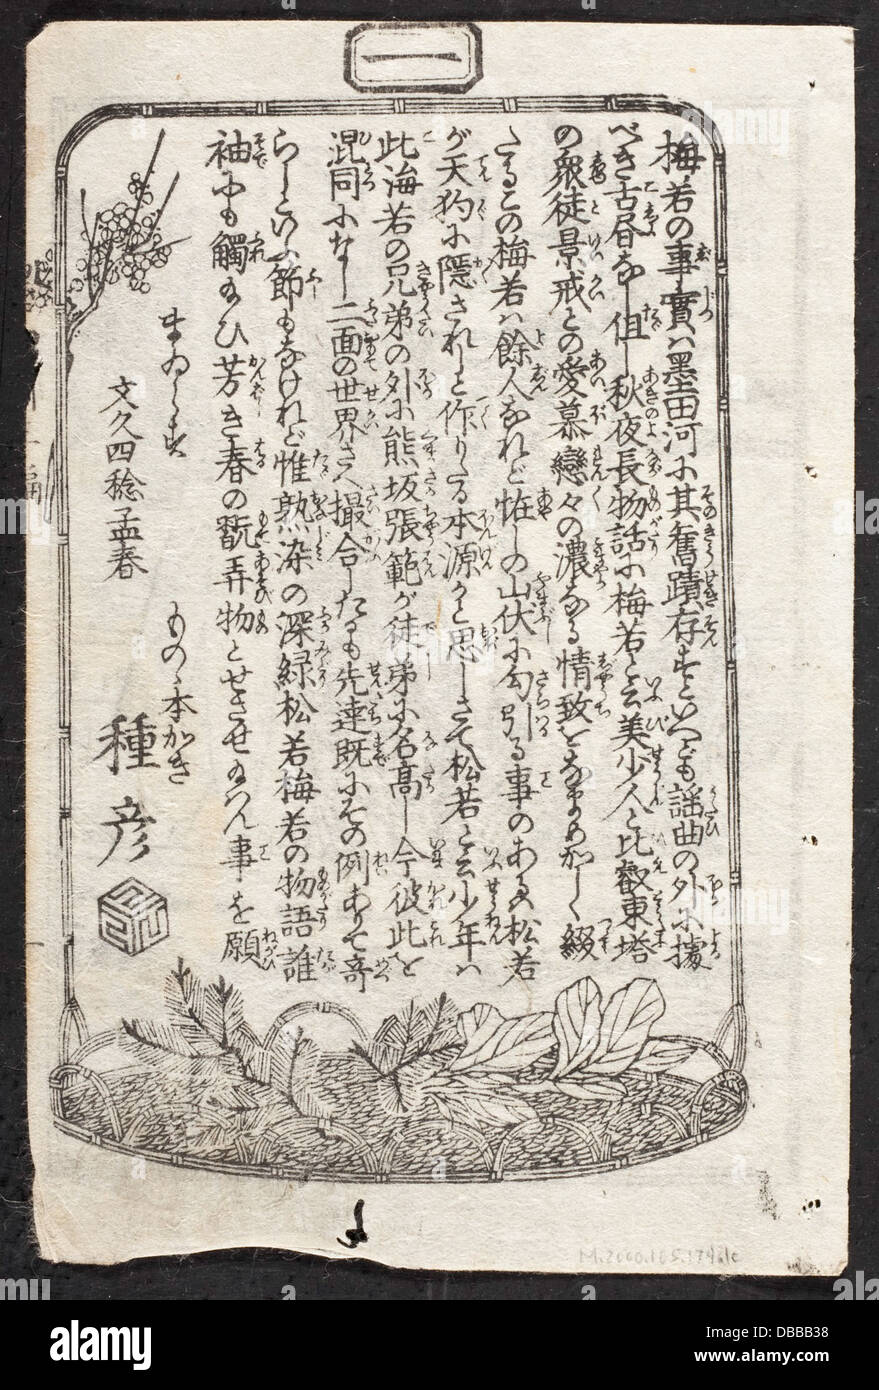 一
梅若の事實ハ墨田河に其舊蹟存すといへども謡曲の外に據
べき古昼なし但し秋夜長物語に梅若と云美少人と比叡東塔
の衆徒景戒との愛慕戀々の濃なる情致をなまめかしく綴
たるこの梅若ハ餘人なれど恠しの山伏に勾引る事のある松若
が天狗に隠されしと作りたる本源かと思しきて松若と云少年ハ
此梅若の兄弟の外に熊坂張範が徒弟に名高し今彼此を
混同になし二面の世界さへ撮合したるも先達既にその例ありて奇
らしといふ節もなけれど惟熟染の深緑松若梅若の物語誰
袖にも觸給ひ芳き春の翫弄物とせさせ給はん事を願
まゐらす
文久四稔孟春
ものゝ本かき
種彦
M.2000.105.179.1c
alamy
DBBB38
www.alamy.com